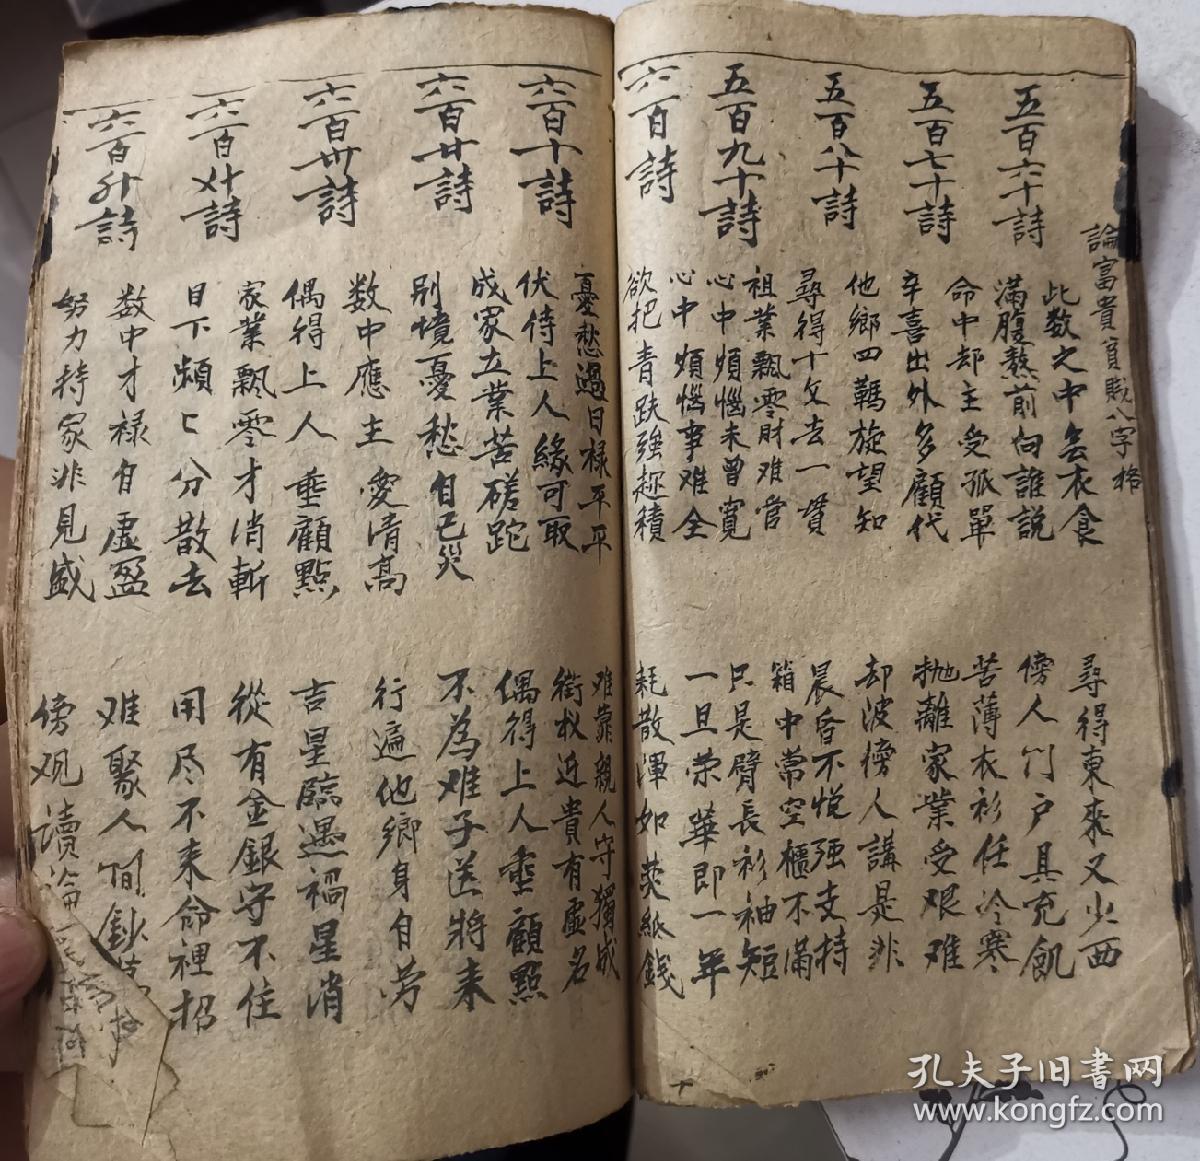 論富貴貧賤八字格
五百六十詩
此数之中無衣食 尋得東來又少西
滿腹熬煎向誰説 傍人门户具充飢
五百七十詩
命中却主受孤單 苦薄衣衫任冷寒
辛喜出外多顧代 抛離家業受艰难
五百八十詩
他鄉四鞨旋望知 却波傍人講是非
尋得十文去一貫 晨昏不悦强支持
五百九十詩
祖業飄零財难啻 箱中常空櫃不滿
心中煩惱未曾寬 只是臂長衫袖短
六百詩
心中煩惱事难全 一旦荣華即一年
欲把青趺强趂積 耗散渾如焚紙錢
六百十詩
憂愁過日禄平平 难靠親人守獨成
伏待上人緣可取 衔权近貴有虛名
六百廿詩
成家立業苦磋跎 偶得上人垂顧點
別憤憂愁自已災 不為难子送將来
六百卅詩
数中應主愛清高 行遍他鄉身自劳
偶得上人垂顧點 吉星臨遇禍星消
六百〤十詩
家業飄零才消斬 從有金銀守不住
目下频匕分散去 用尽不来命裡招
六百〥十詩
数中才禄自虛盈 难聚人間鈔
努力持家非見盛 傍观讀論
孔夫子旧书网
www.kongfz.com